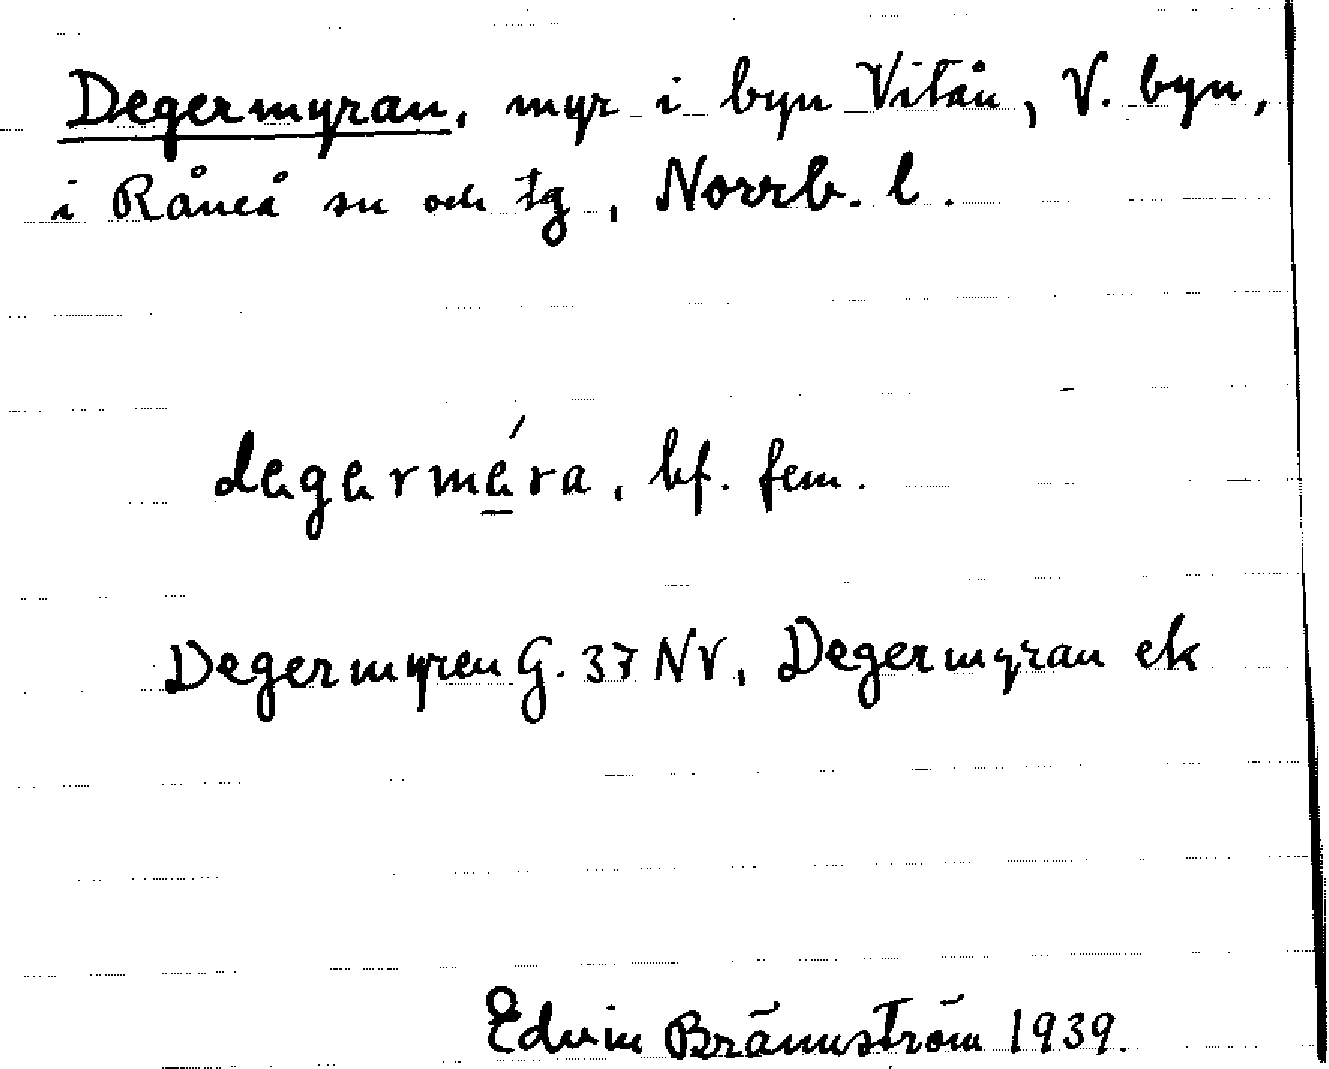 Degermyran, myr i byn Vitån, V. byn,
i Råneå sn och tg, Norrb. l.
degermera, bf. fem.
Degermyren G. 37 NV, Degermyran ek
Edvin Brännström 1939.